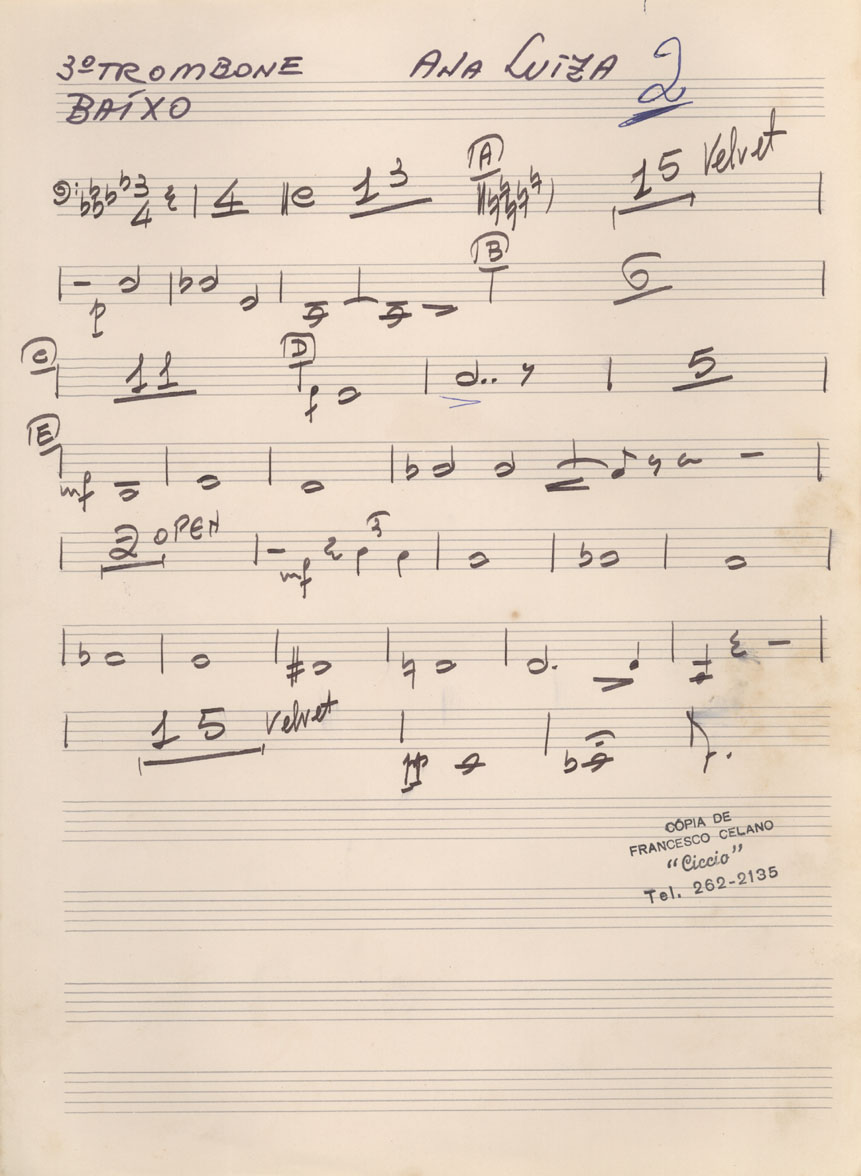 3º TROMBONE ANA LUÍZA 2
BAÍXO
3 4 4 13 A 15 Velvet
p B 6
C 11 D f 5
E mf
2 OPEN mf 3
15 Velvet pp
CÓPIA DE
FRANCESCO CELANO
"Ciccio"
Tel. 262-2135